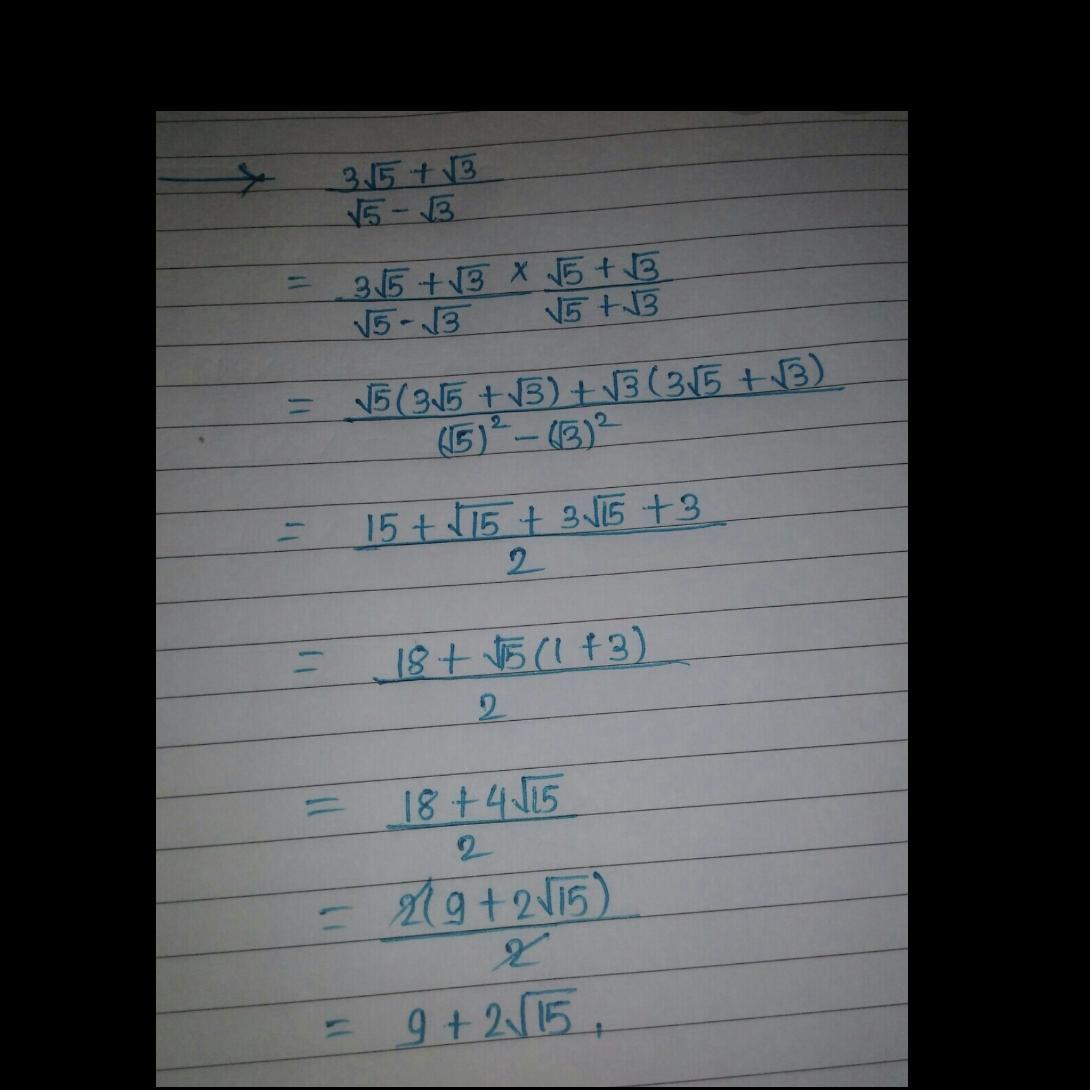 → (3√5 + √3)/(√5 - √3)
= (3√5 + √3)/(√5 - √3) × (√5 + √3)/(√5 + √3)
= (√5(3√5 + √3) + √3(3√5 + √3))/((√5)² - (√3)²)
= (15 + √15 + 3√15 + 3)/2
= (18 + √15(1 + 3))/2
= (18 + 4√15)/2
= 2(9 + 2√15)/2
= 9 + 2√15,